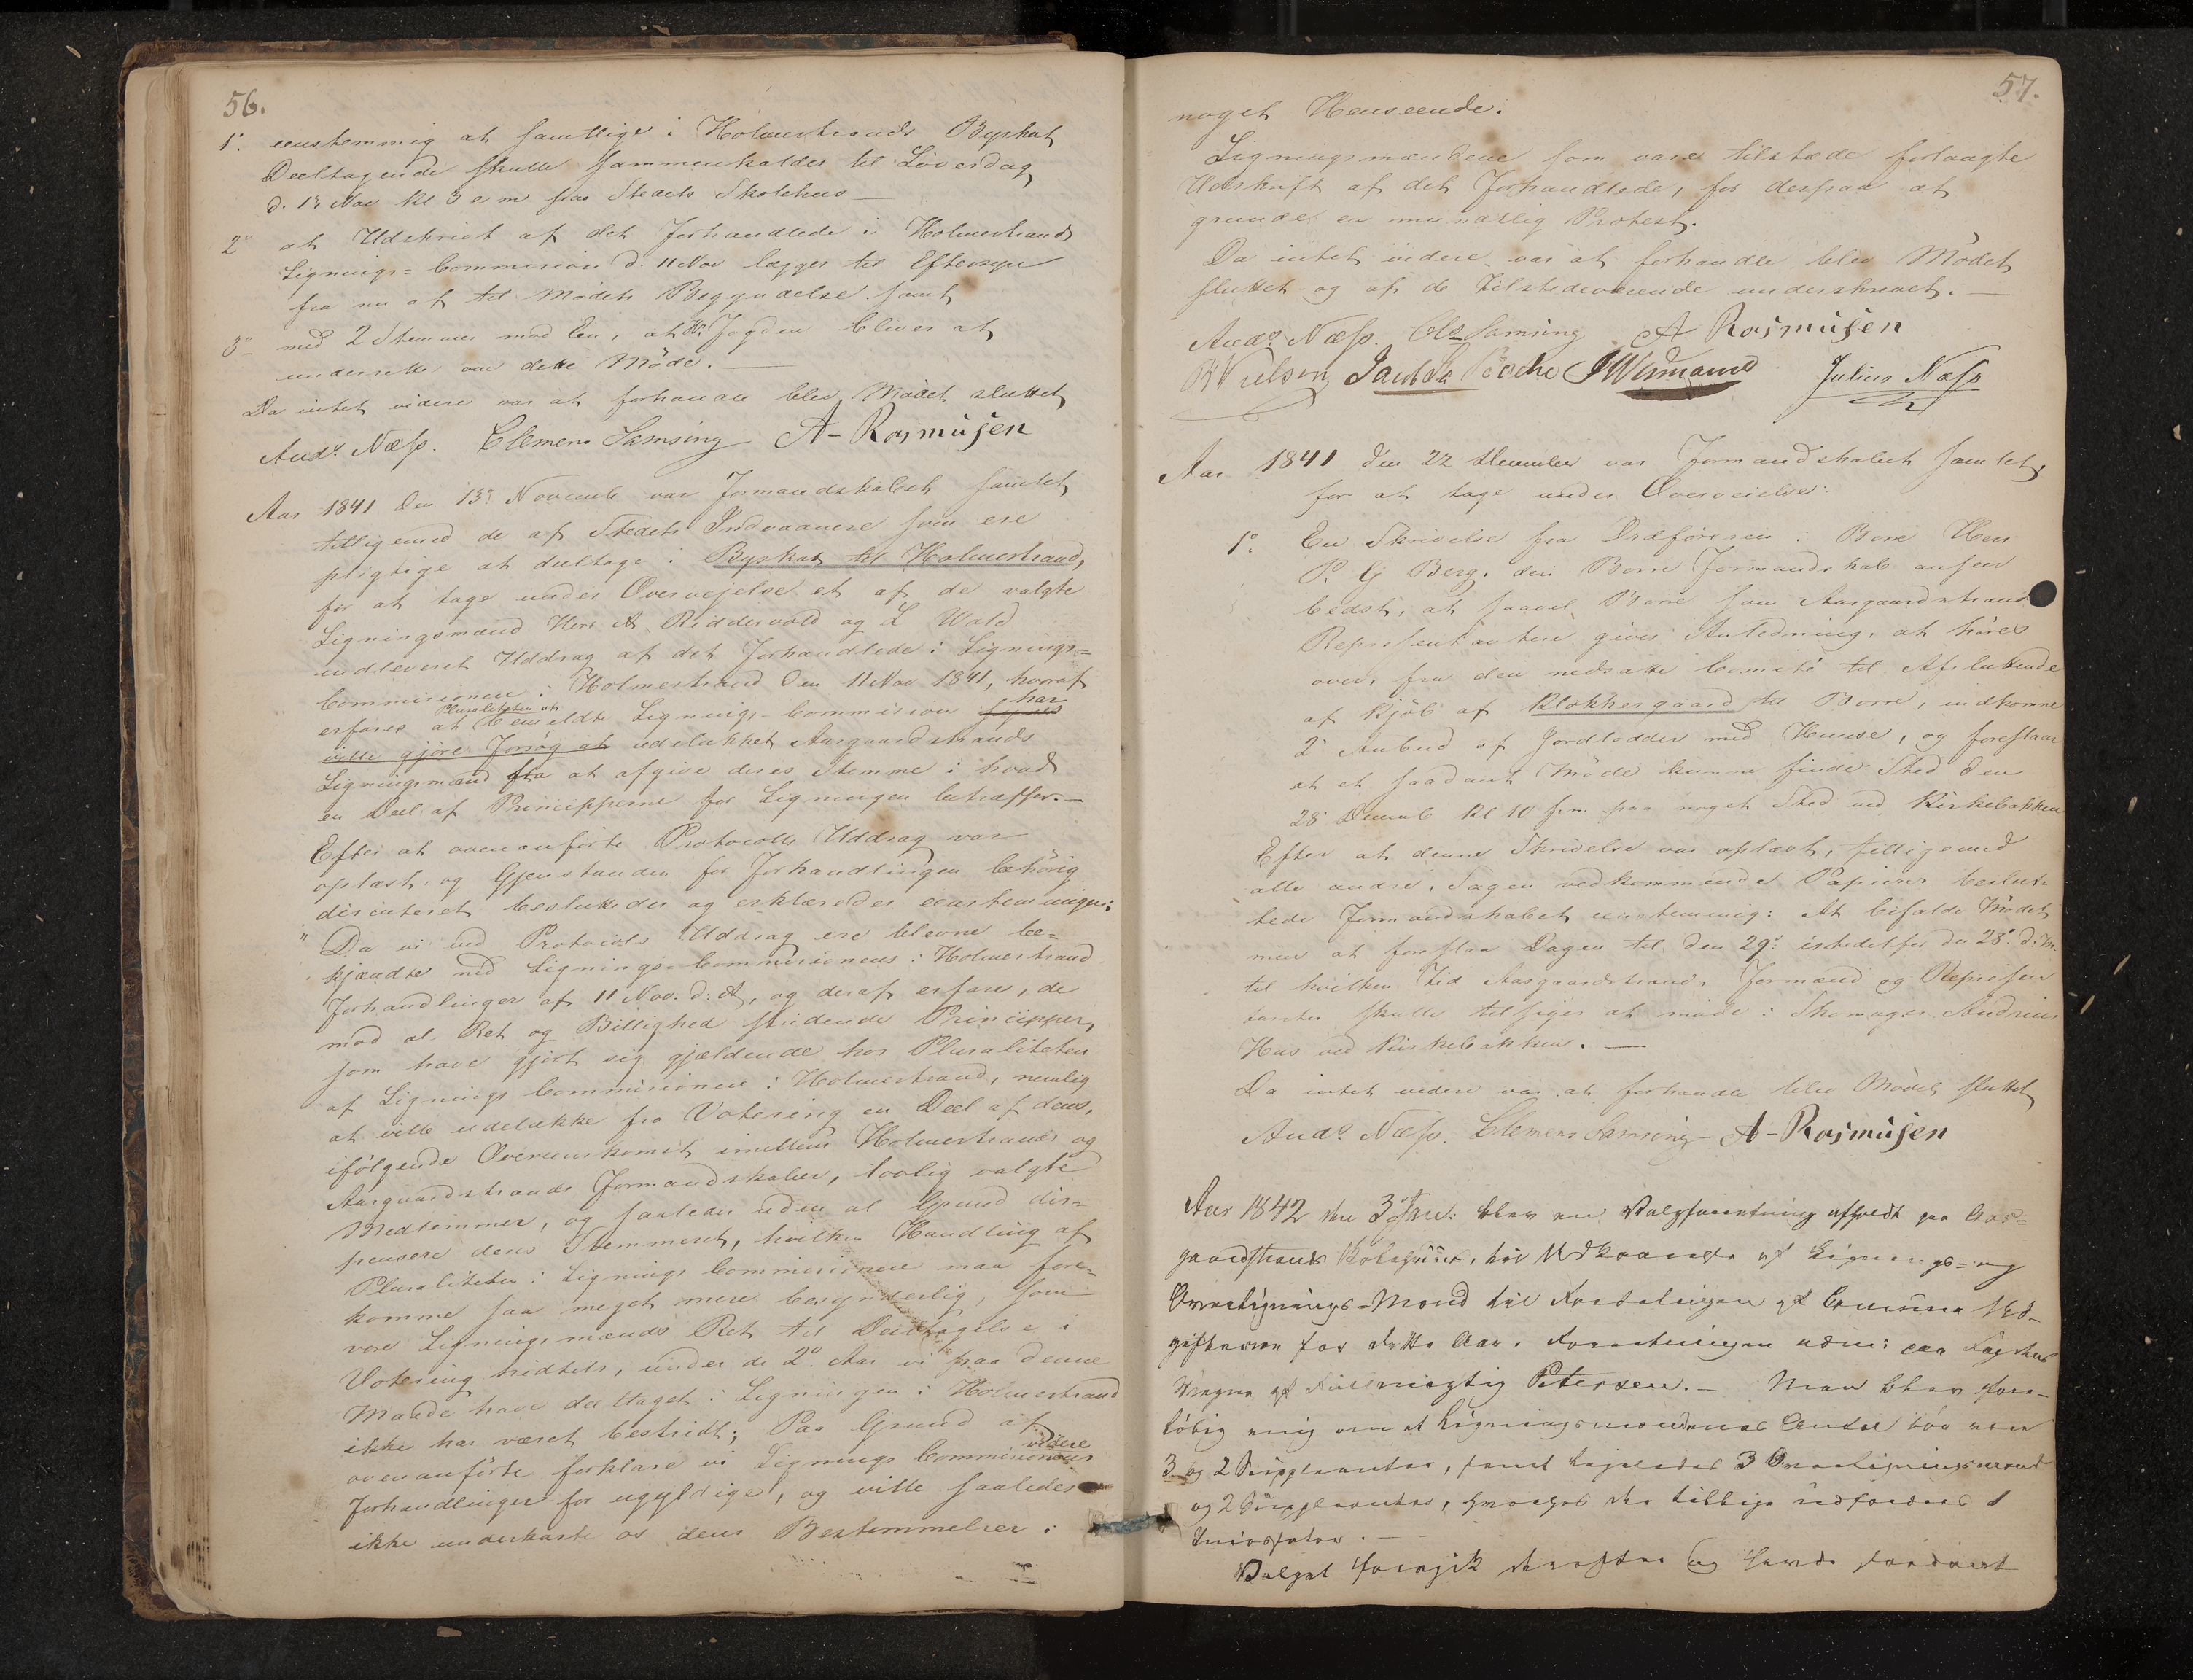 56.
1º. eenstemmig at samtlige i Holmestrands Byskat
Deeltagende skulle sammenkaldes til Löverdag
d. 13 Nov kl 3 e m paa Stedets Skolehus —
2º at Udskrivt af det Forhandlede i Holmestrands
Lignings=Commision d. 11 Nov lægges til Eftersyn
fra nu af til Mødets Begyndelse samt
3º med 2 Stemmer mod Een, at Hr Fogden bliver at
underrette om dette Möde. —
Da intet videre var at forhandle blev Mödet sluttet
Andr. Næss. Clemens Samsing A- Rasmusen
Aar 1841 den 13de Novemb var Formandskabet samlet
tilligemed de af Stedets Indvaanere som ere
pligtige at deeltage i Byskat til Holmestrand,
for at tage under Overvejelse et af de valgte
Ligningsmænd Herr A Riddervold og L Wold
indleveret Uddrag af det Forhandlede i Lignings=
Commisionen i Holmestrand den 11 Nov 1841, hvoraf
erfares at Pluraliteten af bemeldte Lignings-Commision har
ville gjöre Forsög at udelukket Aasgaardstrands
Ligningsmænd fra at afgive deres Stemme i hvad
en Deel af Principperne for Ligningen betræffer. —
Efter at ovenanförte Protocolls Uddrag var
oplæst, og Gjenstanden for Forhandlingen behörig
discuteret besluttedes og erklæredes eenstemmigen:
" Da vi ved Protocols Uddrag ere blevne be=
kjændte med Lignings-Commisionens i Holmestrand
Forhandlinger af 11 Nov. d: A, og deraf erfare, de
mod al Ret og Billighed stridende Principper,
som have gjort sig gjældende hos Pluraliteten
af Lignings Commisionen i Holmestrand, nemlig
at ville udelukke fra Votering en Deel af dens,
ifölgende Overeenskomst imellem Holmestrands og
Aasgaardstrands Formandskaber, lovlig valgte
Medlemmer, og saaledes uden al Grund dis=
pensere deres Stemmeret, hvilken Handling af
Pluraliteten i Lignings Commisionen maa fore=
komme saa meget mere besynderlig, som
vore Ligningsmænds Ret til Deeltagelse i
Votering hidtils, under de 2de Aar vi paa denne
Maade have deeltaget i Ligningen i Holmestrand
ikke har været bestridt; Paa Grund af
ovenanförte forklare vi Lignings Commisionens videre
Forhandlinger for ugyldige, og ville saaledes
ikke underkaste os dens Bestemmelser i
57.
noget Henseende.
Ligningsmændene som vare tilstæde forlangte
Udskrift af det Forhandlede, for derpaa at
grunde en Protest.
Da intet videre var at forhandle blev Mödet
sluttet og af de tilstedeværende underskrevet. —
Andr. Næss. Cl. Samsing A Rasmusen
Julius Næss
Aar 1841 den 22 December var Formandskabet samlet,
for at tage under Overveielse:
1º. En Skrivelse fra Ordföreren i Borre Herr
P. G Berg, den Borre Formandskab anseer
bedst, at saavel Borre som Aasgaardstrand
Repræsentantere gives Anledning, at höres
over, fra den nedsatte Comité til Afsluttende
af Kjöb af Klokkergaard til Borre, indkomne
2de Anbud af Jordlodder med Huuse, og foreslaar
at et saadant Möde kunne finde Sted den
28de Decemb kl 10 f.m. paa noget Sted ved Kirkebakken
Efter at denne Skrivelse var oplæst, tilligemed
alle andre, Sagen vedkommende Papirer beslut-
tede Formandskabet eenstemmig: At bifalde Mödet
men at foreslaa Dagen til den 29de istedetfor den 28de d. M.
til hvilken Tid Aasgaardstrands Formænd og Repræsen
tanter skulle tilsiges at möde i Skomager Andreas
Hus ved Kirkebakken. —
Da intet videre var at forhandle blev Mödet sluttet
Andr. Næss. Clemens Samsing - A-Rasmusen
Aar 1842 den 3 Jan: blev en Valgforretning afholdt paa Aas=
gaardstrands til Udkaarelse af Lignings= og
Overlignings=Mænd til Fordelingen af Commune Ud-
gifterne for dette Aar. Forretningen
af Fuldmægtig Petersen. — Man blev fore-
löbig enig om at Ligningsmændenes Antal bör være
3 og 2 Suppleanter, samt ligeledes 3 Overligningsmænd
og 2 Suppleanter,
Valget foregik derefter og